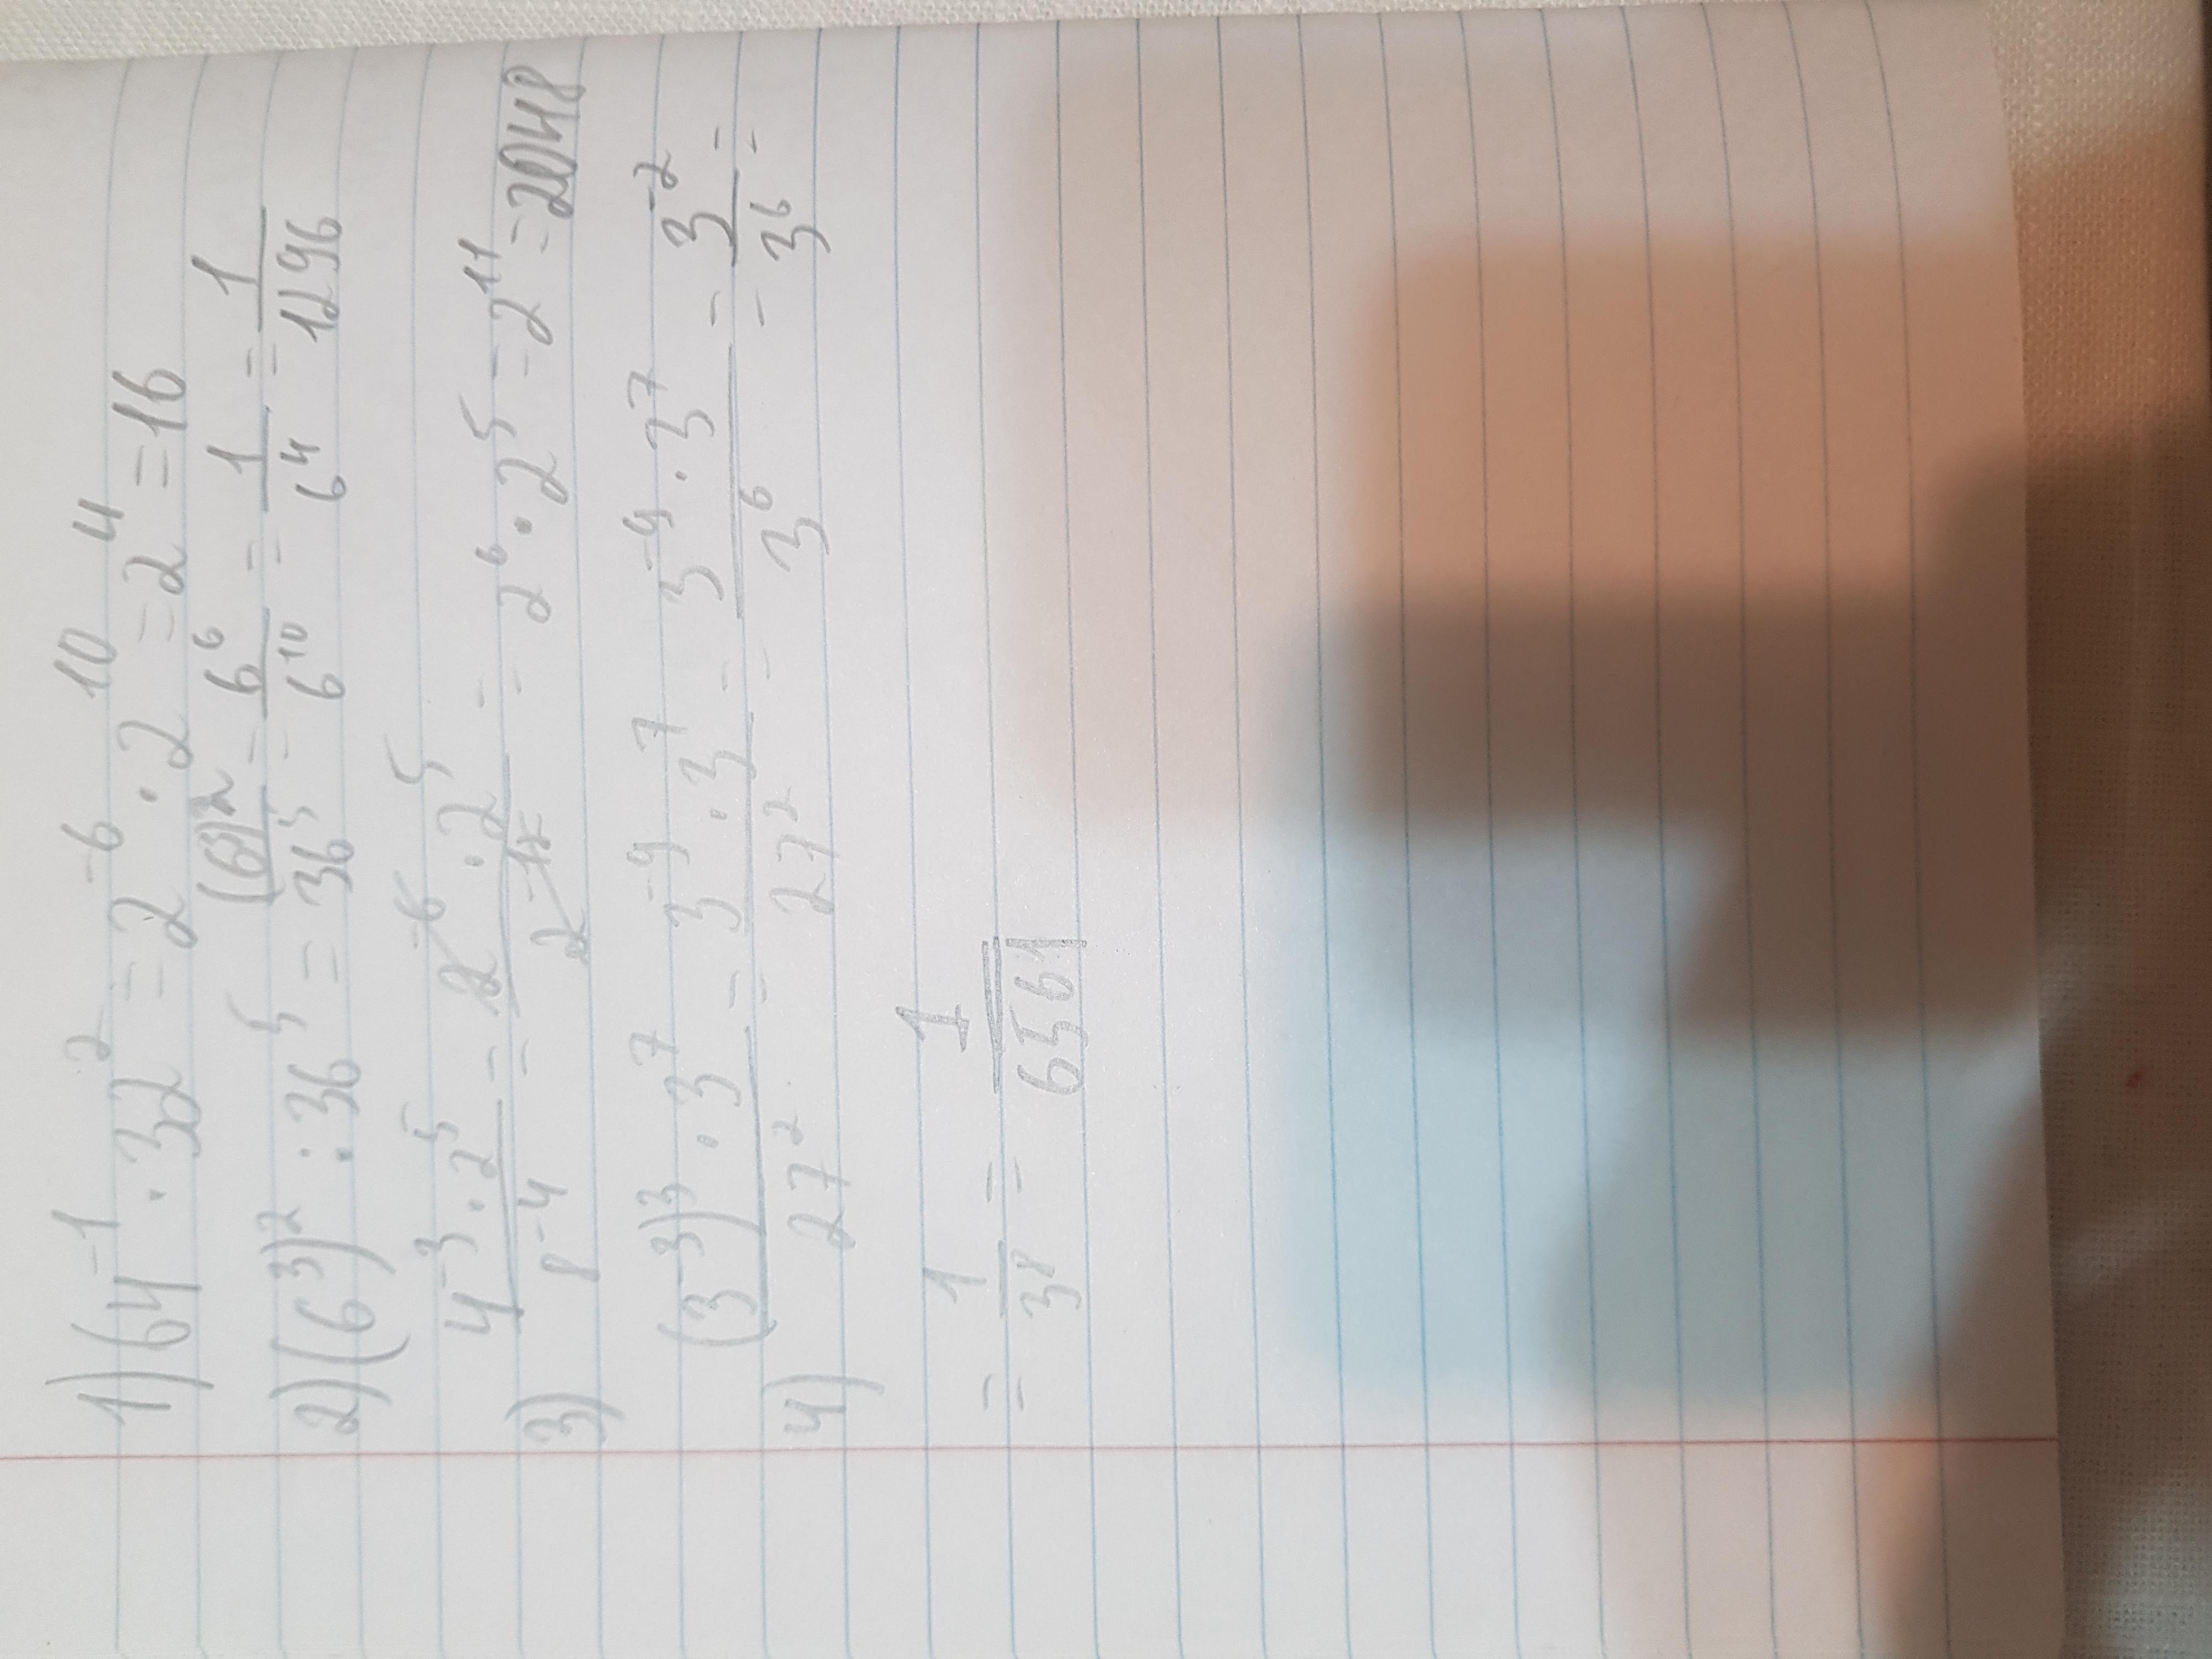 1) 64⁻¹ · 32² = 2⁻⁶ · 2¹⁰ = 2⁴ = 16
2) (6³)² : 36⁵ = (6³)²/36⁵ = 6⁶/6¹⁰ = 1/6⁴ = 1/1296
3) 4⁻³ · 2⁵/8⁻⁴ = 2⁻⁶ · 2⁵/2⁻¹² = 2⁶ · 2⁵ = 2¹¹ = 2048
4) (3⁻³)³ · 3⁷/27² = 3⁻⁹ · 3⁷/27² = 3⁻⁹ · 3⁷/3⁶ = 3⁻²/3⁶ =
= 1/3⁸ = 1/6561